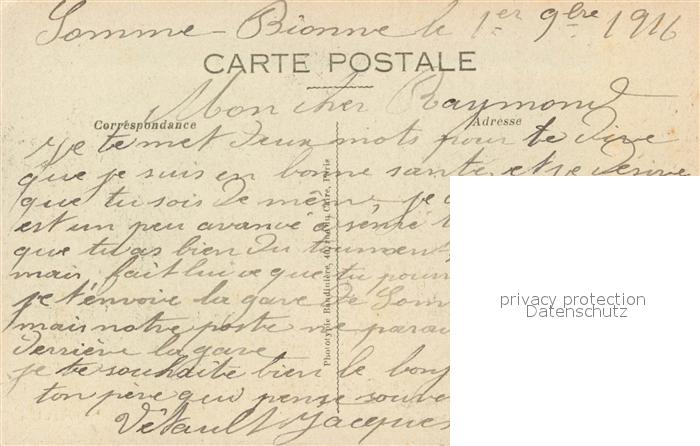 Somme-Bionne le 1er 9bre 1916
CARTE POSTALE
Mon cher Raymond
Correspondance
Adresse
je te met deux mots pour te dire
que je suis en bonne santé et je désire
que tu sois de même je
est un peu avancé
que tu as bien du tourment
mais fait lui ce que tu
je t'envoie la gare de Somm
mais notre poste ne parai
derrière la gare
je te souhaite bien le bonj
ton père qui pense souve
Vétault Jacques
Phototypie Baudinière, Paris
privacy protection
Datenschutz